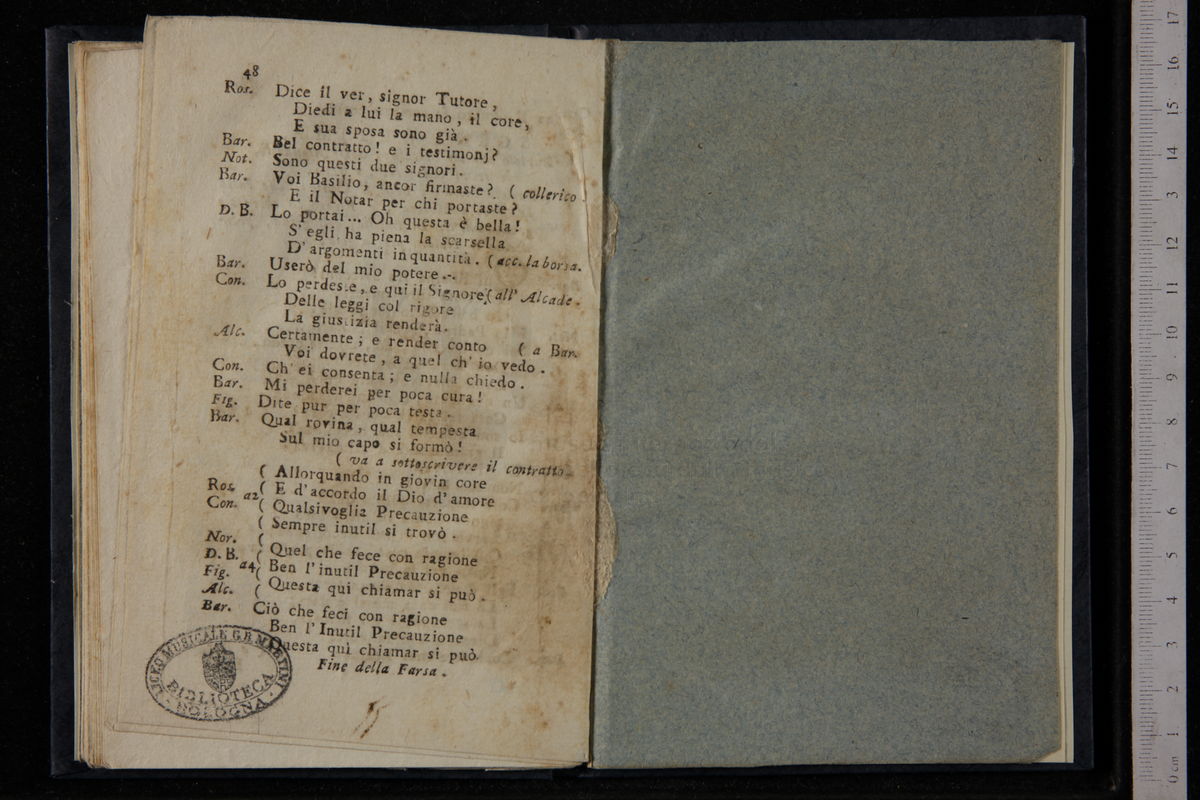 48
Ros. Dice il ver, signor Tutore,
Diedi a lui la mano, il core,
E sua sposa sono già.
Bar. Bel contratto! e i testimonj?
Not. Sono questi due signori.
Bar. Voi Basilio, ancor firmaste? ( collerico.
E il Notar per chi portaste?
D. B. Lo portai... Oh questa è bella!
S'egli ha piena la scarsella
D'argomenti in quantità. (acc. la borsa.
Bar. Userò del mio potere...
Con. Lo perdeste, e qui il Signore (all' Alcade.
Delle leggi col rigore
La giustizia renderà.
Alc. Certamente; e render conto ( a Bar.
Voi dovrete, a quel ch'io vedo.
Con. Ch'ei consenta; e nulla chiedo.
Bar. Mi perderei per poca cura!
Fig. Dite pur per poca testa.
Bar. Qual rovina, qual tempesta
Sul mio capo si formò!
( va a sottoscrivere il contratto.
( Allorquando in giovin core
Ros. ( E d'accordo il Dio d'amore
Con. a2 ( Qualsivoglia Precauzione
( Sempre inutil si trovò.
Nor. (
D. B. ( Quel che fece con ragione
Fig. a4 ( Ben l'inutil Precauzione
Alc. ( Questa qui chiamar si può.
Bar. Ciò che feci con ragione
Ben l'Inutil Precauzione
Questa quì chiamar si può.
Fine della Farsa.
LICEO MUSICALE G.B. MARTINI
BIBLIOTECA
BOLOGNA
0 cm 1 2 3 4 5 6 7 8 9 10 11 12 13 14 15 16 17